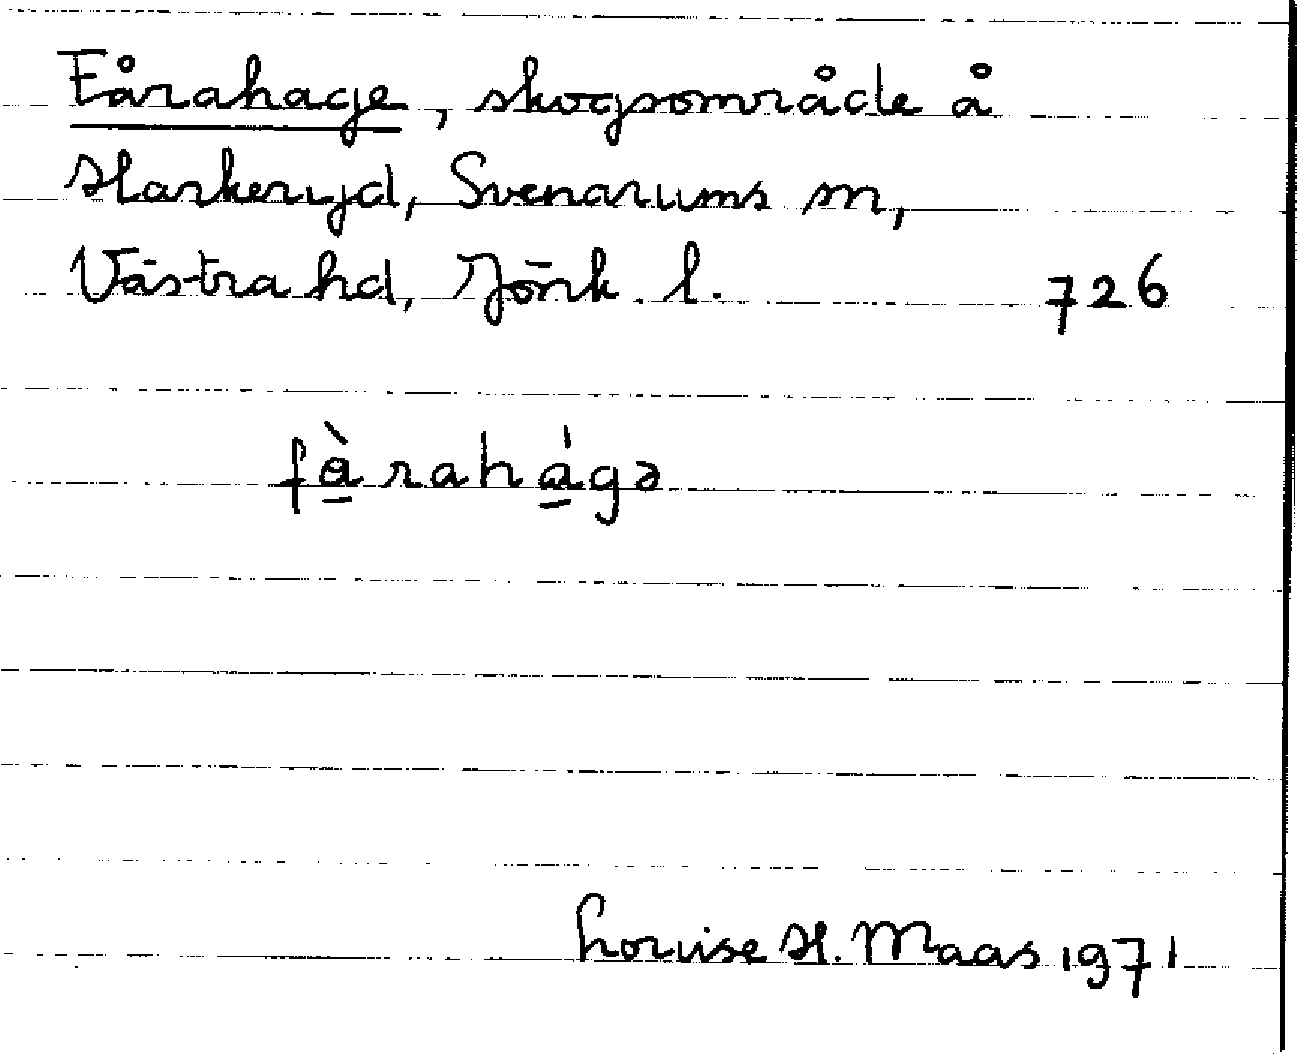 Fårahage, skogsområde å
Harkeryd, Svenarums sn,
Västra hd, Jönk. l. 726
få̱̀rahá̱gə
Louise H. Maas 1971